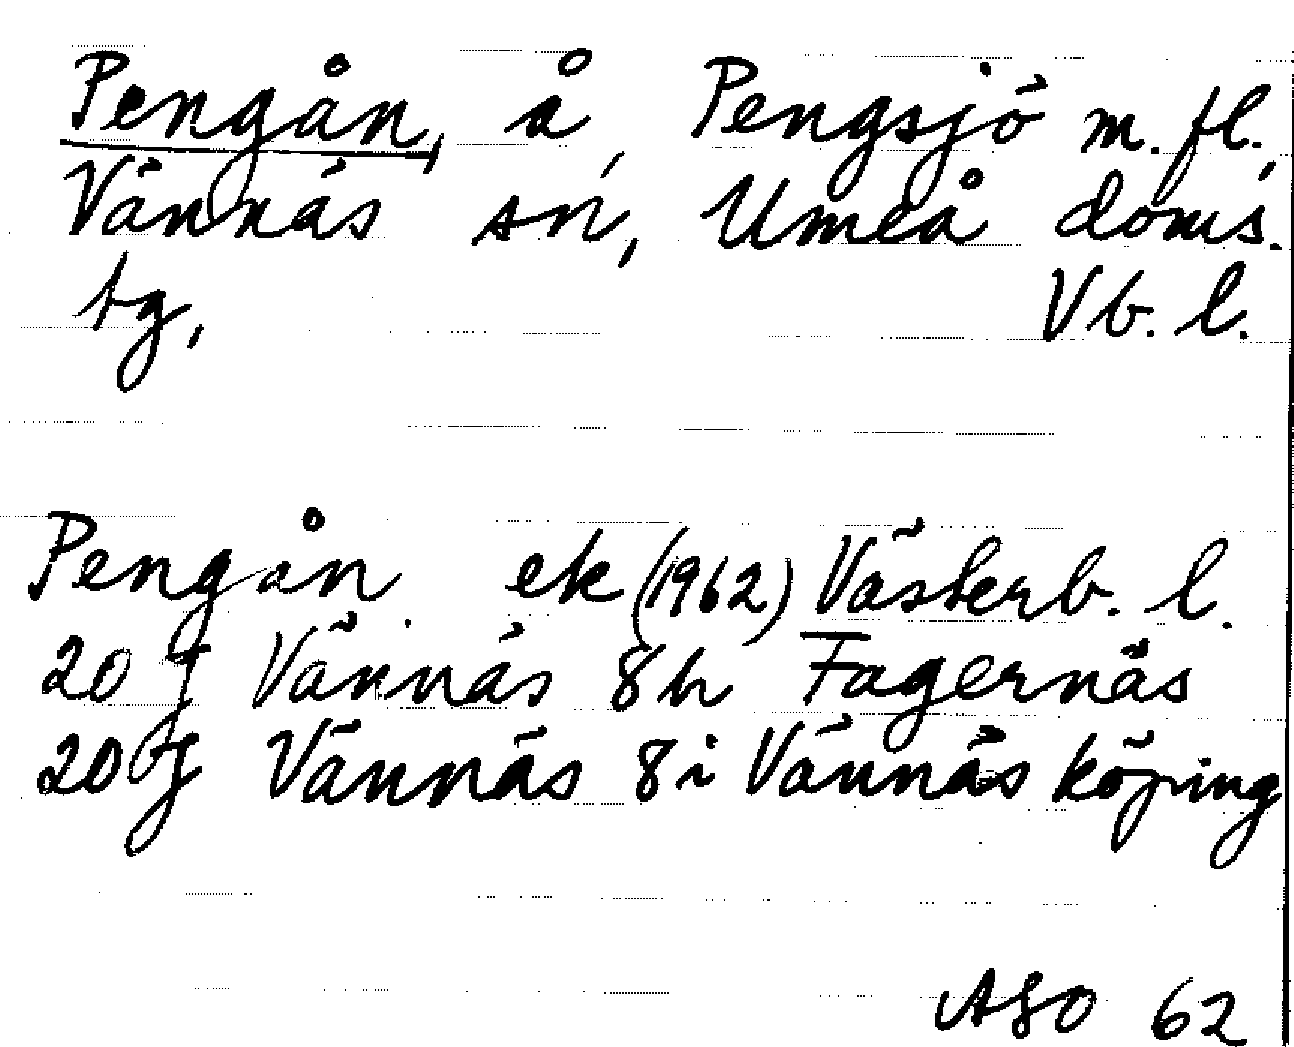 Pengån, å, Pengsjö m. fl.,
Vännäs sn, Umeå doms.
tg, Vb. l.
Pengån. ek (1962) Västerb. l.
20 J Vännäs 8h Fagernäs
20 J Vännäs 8i Vännäs köping
ASO 62